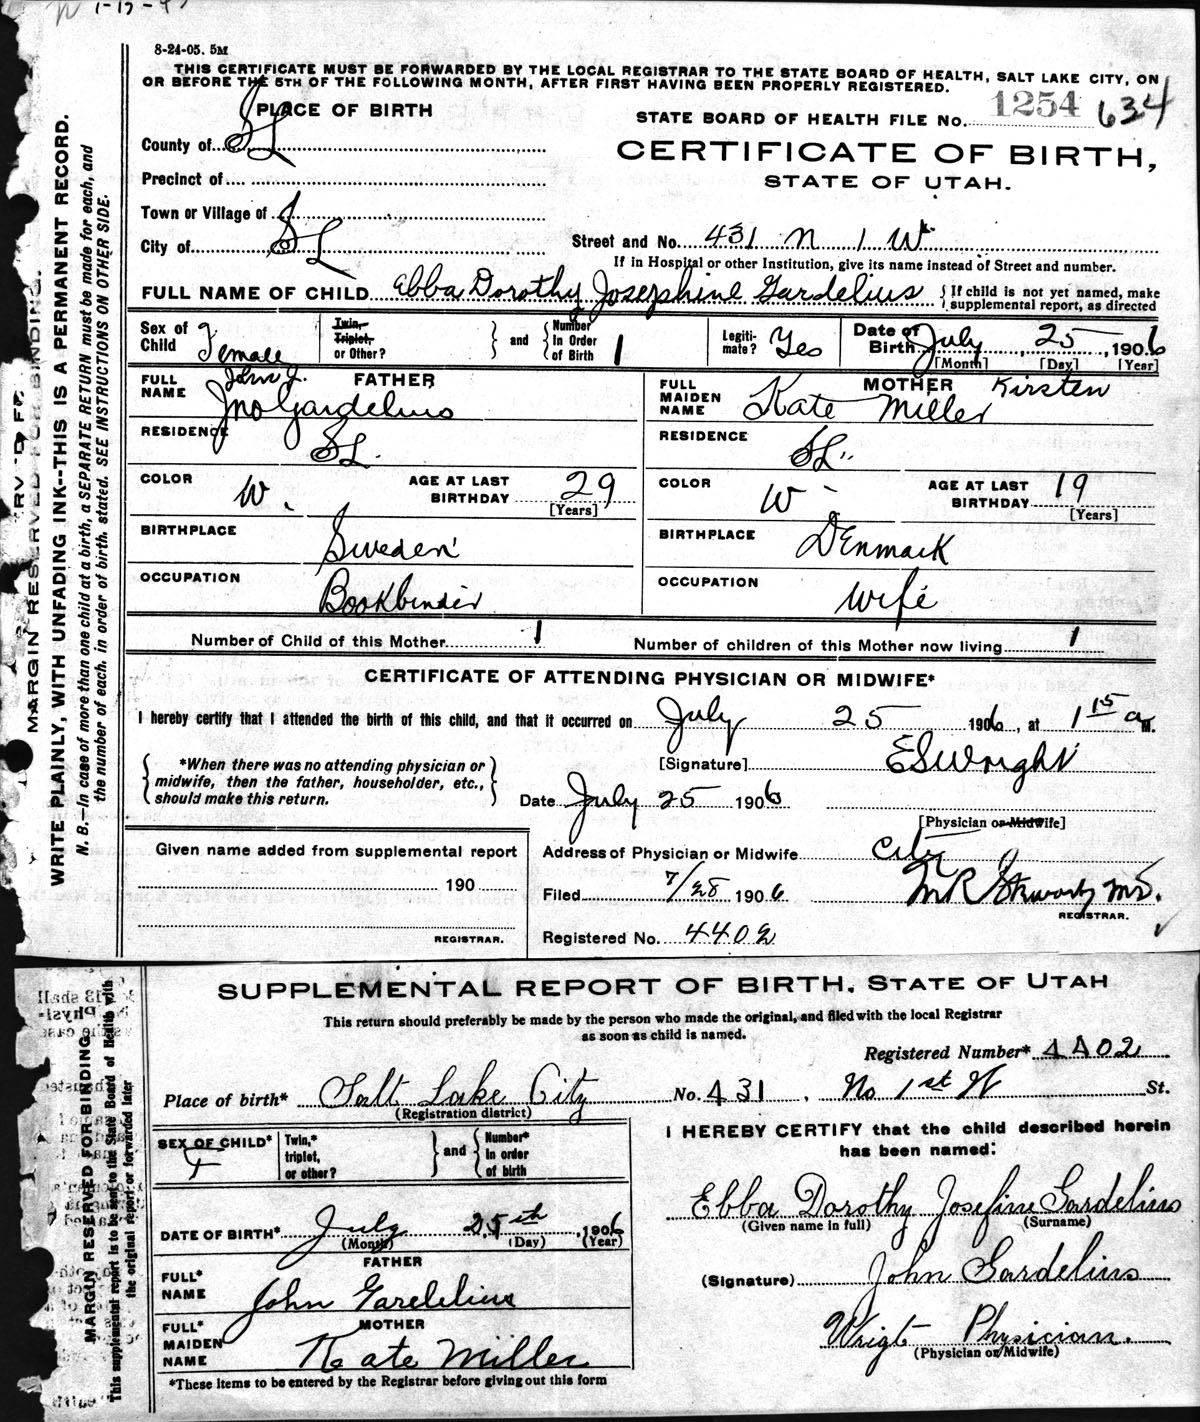 1-17-9
8-24-05. 5M
THIS CERTIFICATE MUST BE FORWARDED BY THE LOCAL REGISTRAR TO THE STATE BOARD OF HEALTH, SALT LAKE CITY, ON
OR BEFORE THE 5TH OF THE FOLLOWING MONTH, AFTER FIRST HAVING BEEN PROPERLY REGISTERED.
PLACE OF BIRTH
STATE BOARD OF HEALTH FILE No. 1254 634
County of SL
CERTIFICATE OF BIRTH,
STATE OF UTAH.
Precinct of
Town or Village of
City of SL
Street and No. 431 N 1 W
If in Hospital or other Institution, give its name instead of Street and number.
FULL NAME OF CHILD Ebba Dorothy Josephine Gardelius { If child is not yet named, make
supplemental report, as directed
Sex of Child Female
Twin, Triplet, or Other? } and { Number In Order of Birth 1
Legiti-mate? Yes
Date of Birth July 25, 1906
[Month] [Day] [Year]
FATHER
FULL NAME John J. Jno Gardelius
RESIDENCE SL.
COLOR W.
AGE AT LAST BIRTHDAY 29 [Years]
BIRTHPLACE Sweden
OCCUPATION Bookbinder
MOTHER
FULL MAIDEN NAME Kate Kirsten Miller
RESIDENCE SL
COLOR W
AGE AT LAST BIRTHDAY 19 [Years]
BIRTHPLACE Denmark
OCCUPATION Wife
Number of Child of this Mother 1
Number of children of this Mother now living 1
CERTIFICATE OF ATTENDING PHYSICIAN OR MIDWIFE*
I hereby certify that I attended the birth of this child, and that it occurred on July 25 1906, at 1 15 a M.
{ *When there was no attending physician or
midwife, then the father, householder, etc.,
should make this return. }
[Signature] E S Wright
Date July 25 1906
[Physician or Midwife]
Given name added from supplemental report
190
REGISTRAR.
Address of Physician or Midwife City
Filed 7/28 1906
REGISTRAR.
Registered No. 4402
MARGIN RESERVED FOR BINDING.
WRITE PLAINLY, WITH UNFADING INK--THIS IS A PERMANENT RECORD.
N. B.—In case of more than one child at a birth, a SEPARATE RETURN must be made for each, and
the number of each, in order of birth, stated. SEE INSTRUCTIONS ON OTHER SIDE.
SUPPLEMENTAL REPORT OF BIRTH, STATE OF UTAH
This return should preferably be made by the person who made the original, and filed with the local Registrar
as soon as child is named.
Registered Number* 4402
Place of birth* Salt Lake City
(Registration district)
No. 431, No 1st W St.
SEX OF CHILD* F
Twin,* triplet, or other? } and { Number* In order of birth
I HEREBY CERTIFY that the child described herein
has been named:
Ebba Dorothy Josefine Gardelius
(Given name in full) (Surname)
DATE OF BIRTH* July 25th 1906
(Month) (Day) (Year)
FATHER
FULL* NAME John Gardelius
(Signature) John Gardelius
MOTHER
FULL* MAIDEN NAME Kate Miller
Wrigt Physician.
(Physician or Midwife)
*These items to be entered by the Registrar before giving out this form
MARGIN RESERVED FOR BINDING.
This supplemental report is to be sent to the State Board of Health with
the original report or forwarded later